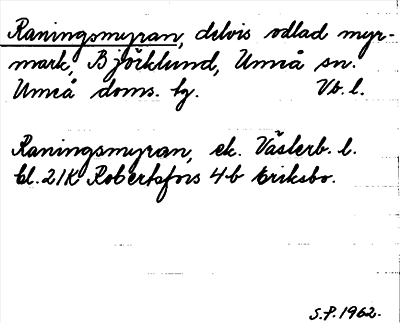 Raningsmyran, delvis odlad myr-
mark, Björklund, Umeå sn.
Umeå doms. lg. Vb. l.
Raningsmyran, ek. Västerb. l.
bl. 21K Robertsfors 4b Eriksbo.
S.P. 1962.